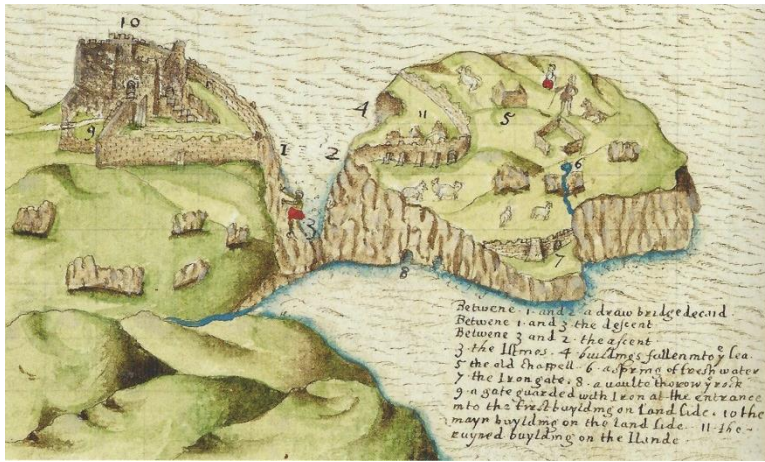 10
9
1
2
3
4
11
5
6
7
8
Betwene · 1 · and 2 · a draw bridge decaid
Betwene 1 · and 3 the descent
Betwene 3 and 2 · the ascent
3 · the Istmos · 4 · buildings fallen into yᵉ sea
5 the old chappell · 6 · a spring of fresh water
7 the Iron gate · 8 · a vault thorow yᵉ rock
9 · a gate guarded with Iron at the entrance
into the first buylding on land side · 10 the
mayn buylding on the land side · 11 · the
ruyned buylding on the Ilande ·